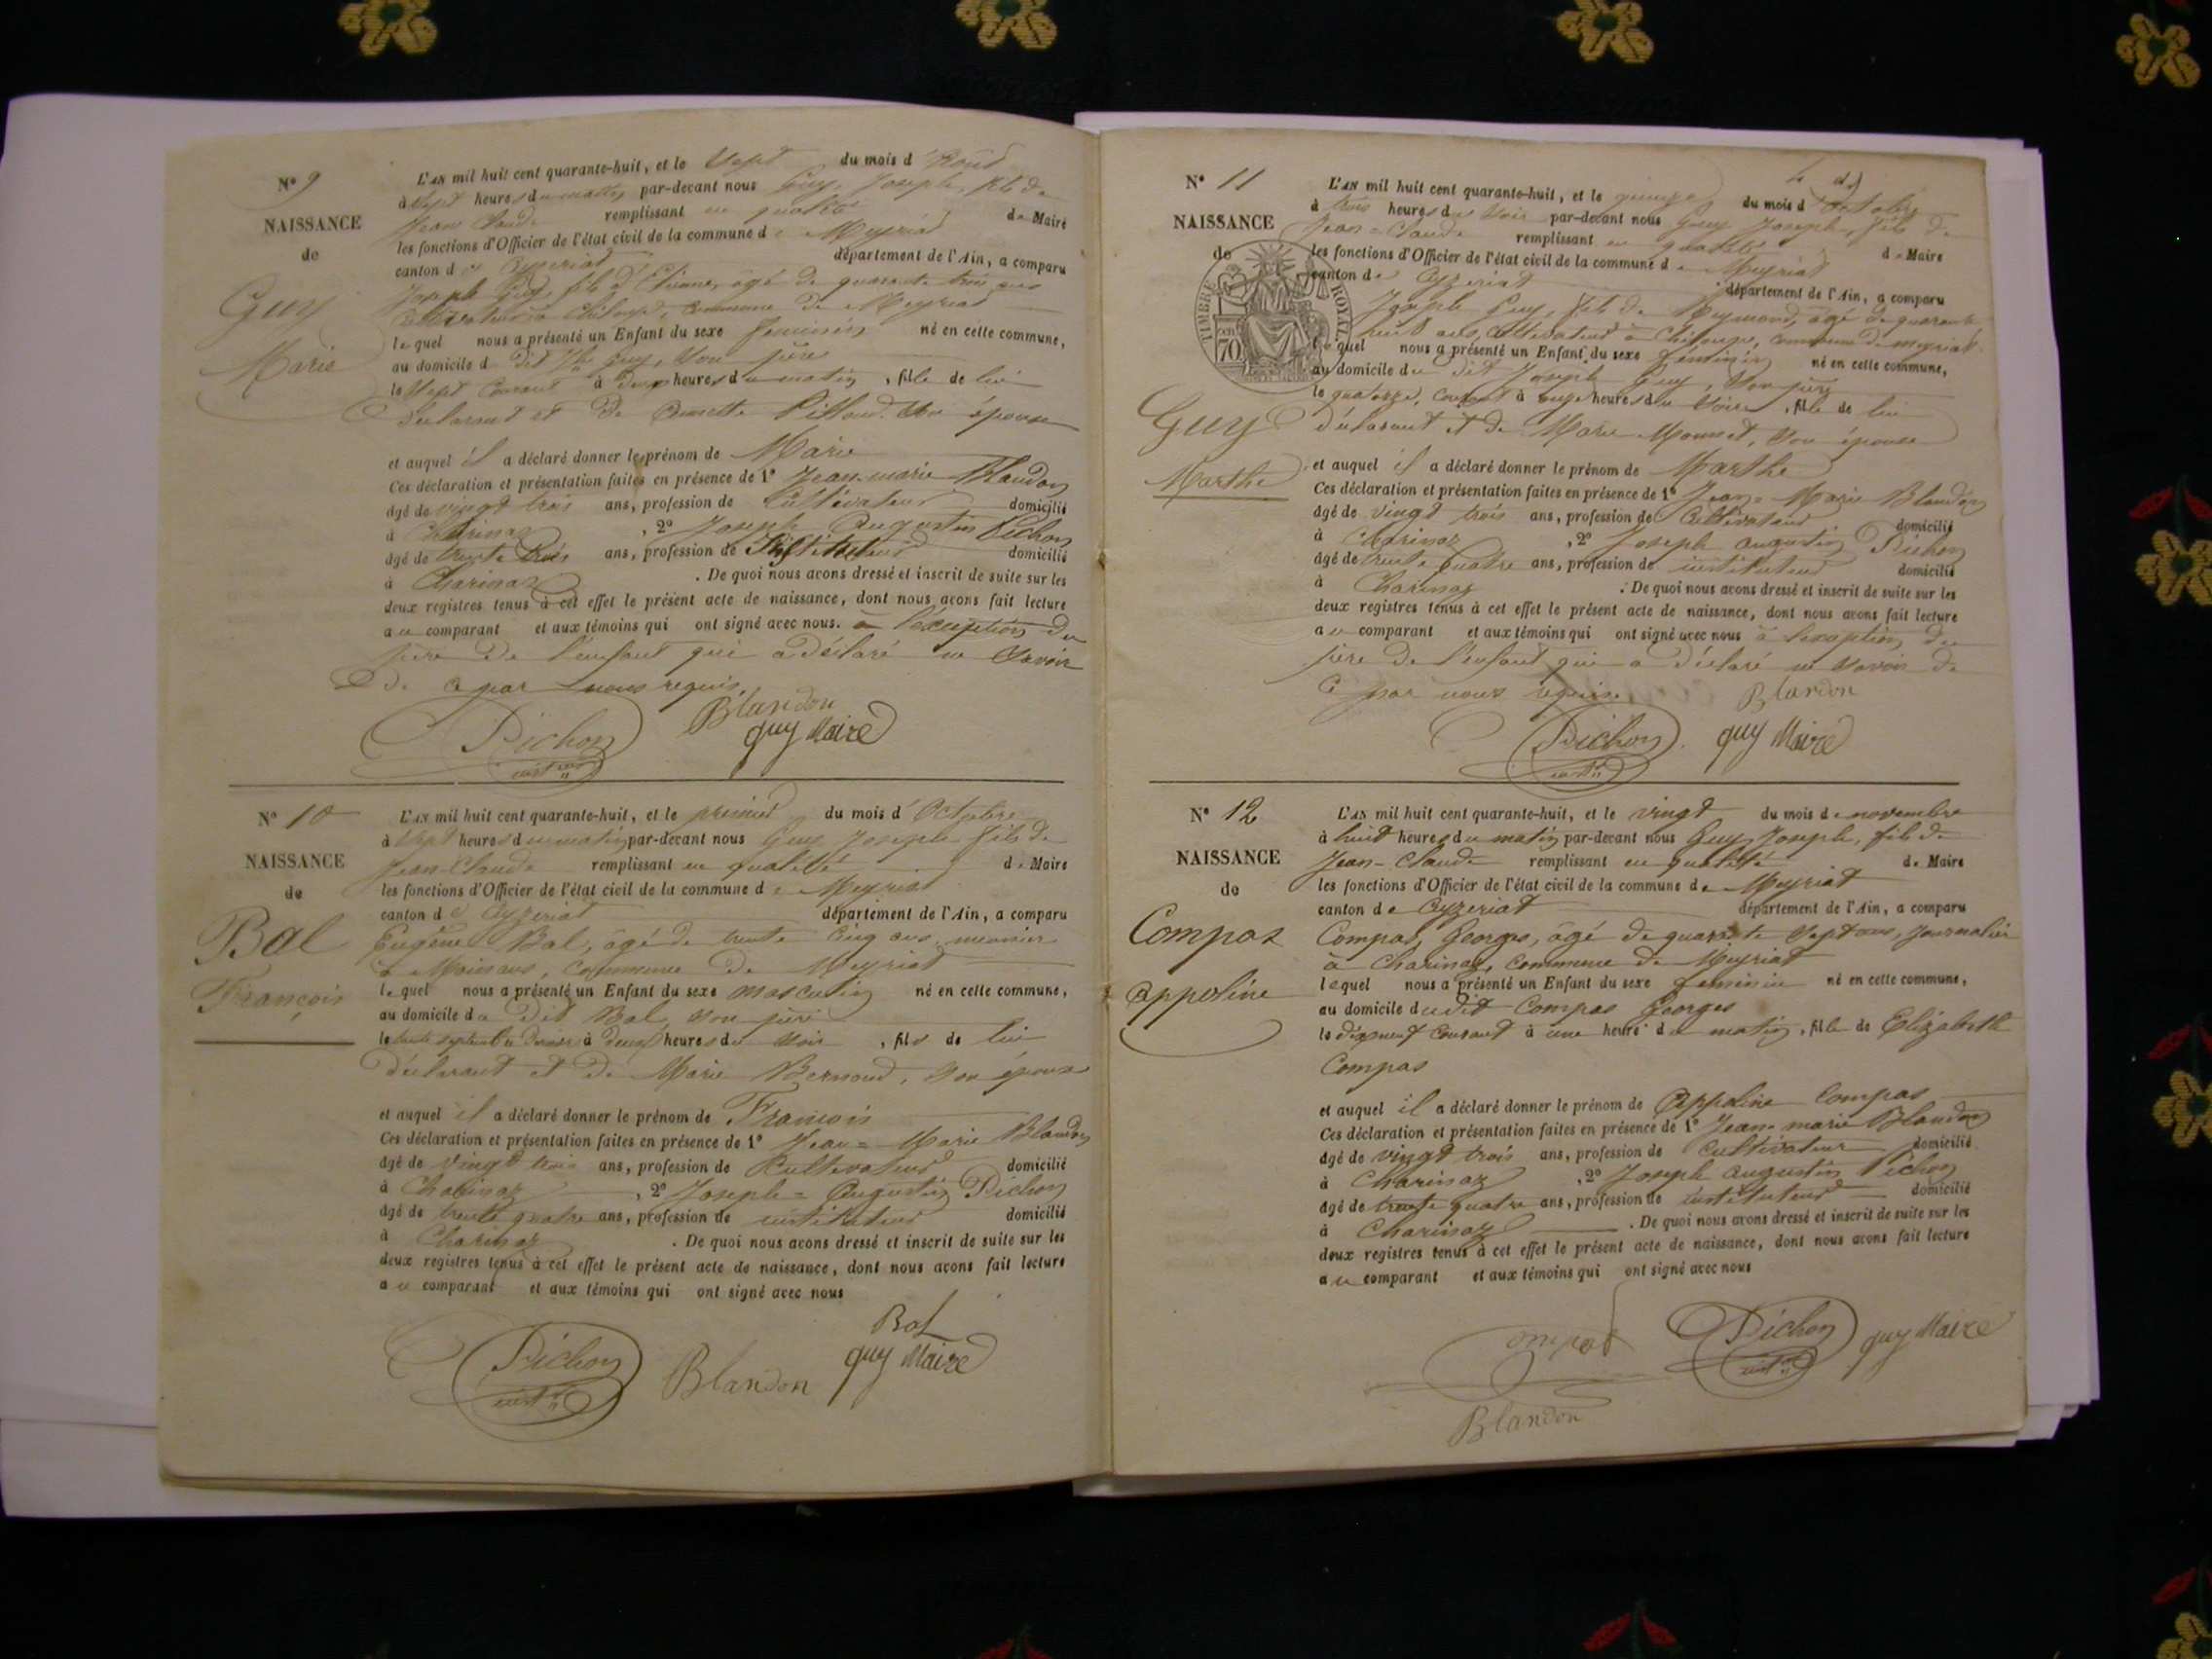 N° 9
NAISSANCE
de
Guy
Marie
L'AN mil huit cent quarante-huit, et le Sept du mois d'Août
à Sept heures du matin par-devant nous Guy, Joseph, fils de
Jean Claude remplissant en qualité de Maire
les fonctions d'Officier de l'état civil de la commune de Meyriat
canton de Ceyzeriat département de l'Ain, a comparu
Joseph Guy, fils d'Etienne, âgé de quarante trois ans
Cultivateur à Chiloup, commune de Meyriat
lequel nous a présenté un Enfant du sexe féminin né en cette commune,
au domicile du dit Guy, son père
le Sept Courant à deux heures du matin, fille de lui
déclarant et de son épouse
et auquel il a déclaré donner le prénom de Marie
Ces déclaration et présentation faites en présence de 1° Jean-marie Blandon
âgé de vingt trois ans, profession de Cultivateur domicilié
à Charinaz, 2° Joseph Augustin Pichon
âgé de trente trois ans, profession de Instituteur domicilié
à Charinaz. De quoi nous avons dressé et inscrit de suite sur les
deux registres tenus à cet effet le présent acte de naissance, dont nous avons fait lecture
au comparant et aux témoins qui ont signé avec nous. à l'exception du
père de l'enfant qui a déclaré ne savoir
de ce par nous requis.
Blandon
Pichon guy Maire
instr
N° 10
NAISSANCE
de
Bal
François
L'AN mil huit cent quarante-huit, et le premier du mois d'Octobre
à Sept heures du matin par-devant nous Guy Joseph fils de
Jean-Claude remplissant en qualité de Maire
les fonctions d'Officier de l'état civil de la commune de Meyriat
canton de Ceyzeriat département de l'Ain, a comparu
Eugène Bal, âgé de trente cinq ans, meunier
à commune de Meyriat
lequel nous a présenté un Enfant du sexe masculin né en cette commune,
au domicile du dit Bal, son père
le trente septembre dernier à deux heures du soir, fils de lui
déclarant et de Marie Bernoud, son épouse
et auquel il a déclaré donner le prénom de François
Ces déclaration et présentation faites en présence de 1° Jean=Marie Blandon
âgé de vingt trois ans, profession de Cultivateur domicilié
à Charinaz, 2° Joseph=Augustin Pichon
âgé de trente quatre ans, profession de instituteur domicilié
à Charinaz. De quoi nous avons dressé et inscrit de suite sur les
deux registres tenus à cet effet le présent acte de naissance, dont nous avons fait lecture
au comparant et aux témoins qui ont signé avec nous
Bal
Pichon Blandon guy Maire
instr
N° 11
NAISSANCE
de
TIMBRE ROYAL
70
Guy
Marthe
L'AN mil huit cent quarante-huit, et le quinze du mois d'Octobre
à trois heures du soir par-devant nous Guy Joseph, fils de
Jean=Claude remplissant en qualité de Maire
les fonctions d'Officier de l'état civil de la commune de Meyriat
canton de Ceyzeriat département de l'Ain, a comparu
Joseph Guy, fils de Reymond, âgé de quarante
huit ans, Cultivateur à Chiloup, commune de meyriat
lequel nous a présenté un Enfant du sexe féminin né en cette commune,
au domicile du dit Joseph Guy, son père
le quatorze, courant à onze heures du soir, fille de lui
déclarant et de Marie son épouse
et auquel il a déclaré donner le prénom de Marthe
Ces déclaration et présentation faites en présence de 1° Jean=Marie Blandon
âgé de vingt trois ans, profession de Cultivateur domicilié
à Charinaz, 2° Joseph augustin Pichon
âgé de trente quatre ans, profession de instituteur domicilié
à Charinaz. De quoi nous avons dressé et inscrit de suite sur les
deux registres tenus à cet effet le présent acte de naissance, dont nous avons fait lecture
au comparant et aux témoins qui ont signé avec nous à l'exception du
père de l'enfant qui a déclaré ne savoir de
ce par nous requis.
Blandon
Pichon guy Maire
instr
N° 12
NAISSANCE
de
Compas
Appoline
L'AN mil huit cent quarante-huit, et le vingt du mois de novembre
à huit heures du matin par-devant nous Guy Joseph, fils de
Jean-Claude remplissant en qualité de Maire
les fonctions d'Officier de l'état civil de la commune de Meyriat
canton de Ceyzeriat département de l'Ain, a comparu
Compas, Georges, âgé de quarante Sept ans, Journalier
à Charinaz, commune de Meyriat
lequel nous a présenté un Enfant du sexe feminin né en cette commune,
au domicile dudit Compas Georges
le dixneuf courant à une heure du matin, fille de Elizabeth
Compas
et auquel il a déclaré donner le prénom de Appoline Compas
Ces déclaration et présentation faites en présence de 1° Jean-marie Blandon
âgé de vingt trois ans, profession de Cultivateur domicilié
à Charinaz, 2° Joseph augustin Pichon
âgé de trente quatre ans, profession de instituteur domicilié
à Charinaz. De quoi nous avons dressé et inscrit de suite sur les
deux registres tenus à cet effet le présent acte de naissance, dont nous avons fait lecture
au comparant et aux témoins qui ont signé avec nous
Compas Pichon guy Maire
instr
Blandon